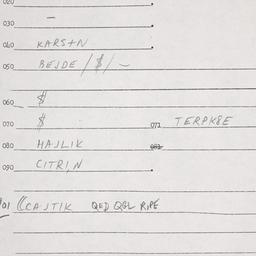 020
030 —
040 KARSTN
050 BEJDE / $ / ~
060 $
070 $ 071 TERPKSE
080 HAJLIK 081
090 CITRIN
101 ((CAJTIK QED QGL RIPE